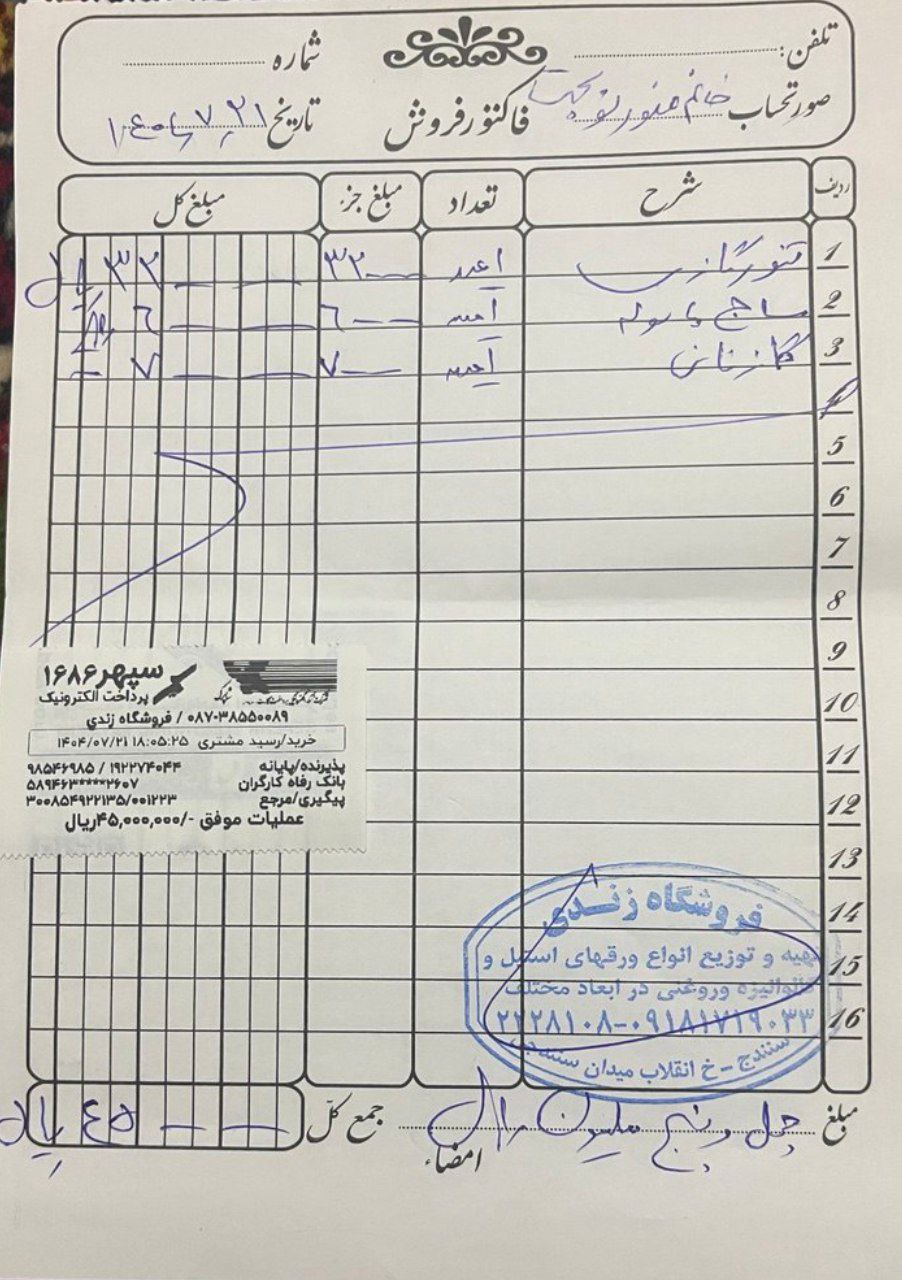 تلفن:
شماره
صورتحساب خانم
فاکتور فروش
تاریخ ۱۴۰۴/۷/۲۱
ردیف شرح تعداد مبلغ جزء مبلغ کل
1 تنور گازی ۱عدد ۳۲ــــ ۳۲ ــ ــ ریال
2 ساج با لوله ۱عدد ٦ــ ــ ٦ ــ ــ ریال
3 گاز نانی ۱عدد ۷ــــ ۷ ــ ــ
4
5
6
7
8
9
10
11
12
13
14
15
16
سپهر۱۶۸۶
پرداخت الکترونیک
۰۸۷-۳۸۵۵۰۰۸۹ / فروشگاه زندی
خرید/رسید مشتری ۱۸:۰۵:۲۵ ۱۴۰۴/۰۷/۲۱
پذیرنده/پایانه ۱۹۲۲۷۴۰۴۴ / ۹۸۵۴۶۹۸۵
بانک رفاه کارگران ۵۸۹۴۶۳****۲۶۰۷
پیگیری/مرجع ۳۰۰۸۵۴۹۲۲۱۳۵/۰۰۱۲۲۳
عملیات موفق -/۴۵,۰۰۰,۰۰۰ریال
فروشگاه زندی
تهیه و توزیع انواع ورقهای استیل و
گالوانیزه وروغنی در ابعاد مختلف
۲۲۲۸۱۰۸-۰۹۱۸۱۷۱۹۰۳۳
سنندج - خ انقلاب میدان سنندجی
مبلغ چهل و پنج میلیون ریال جمع کل ٤۵ ــ ــ ریال
امضاء